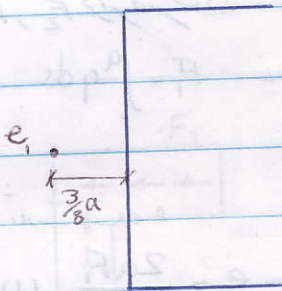 e₁
3/8 a